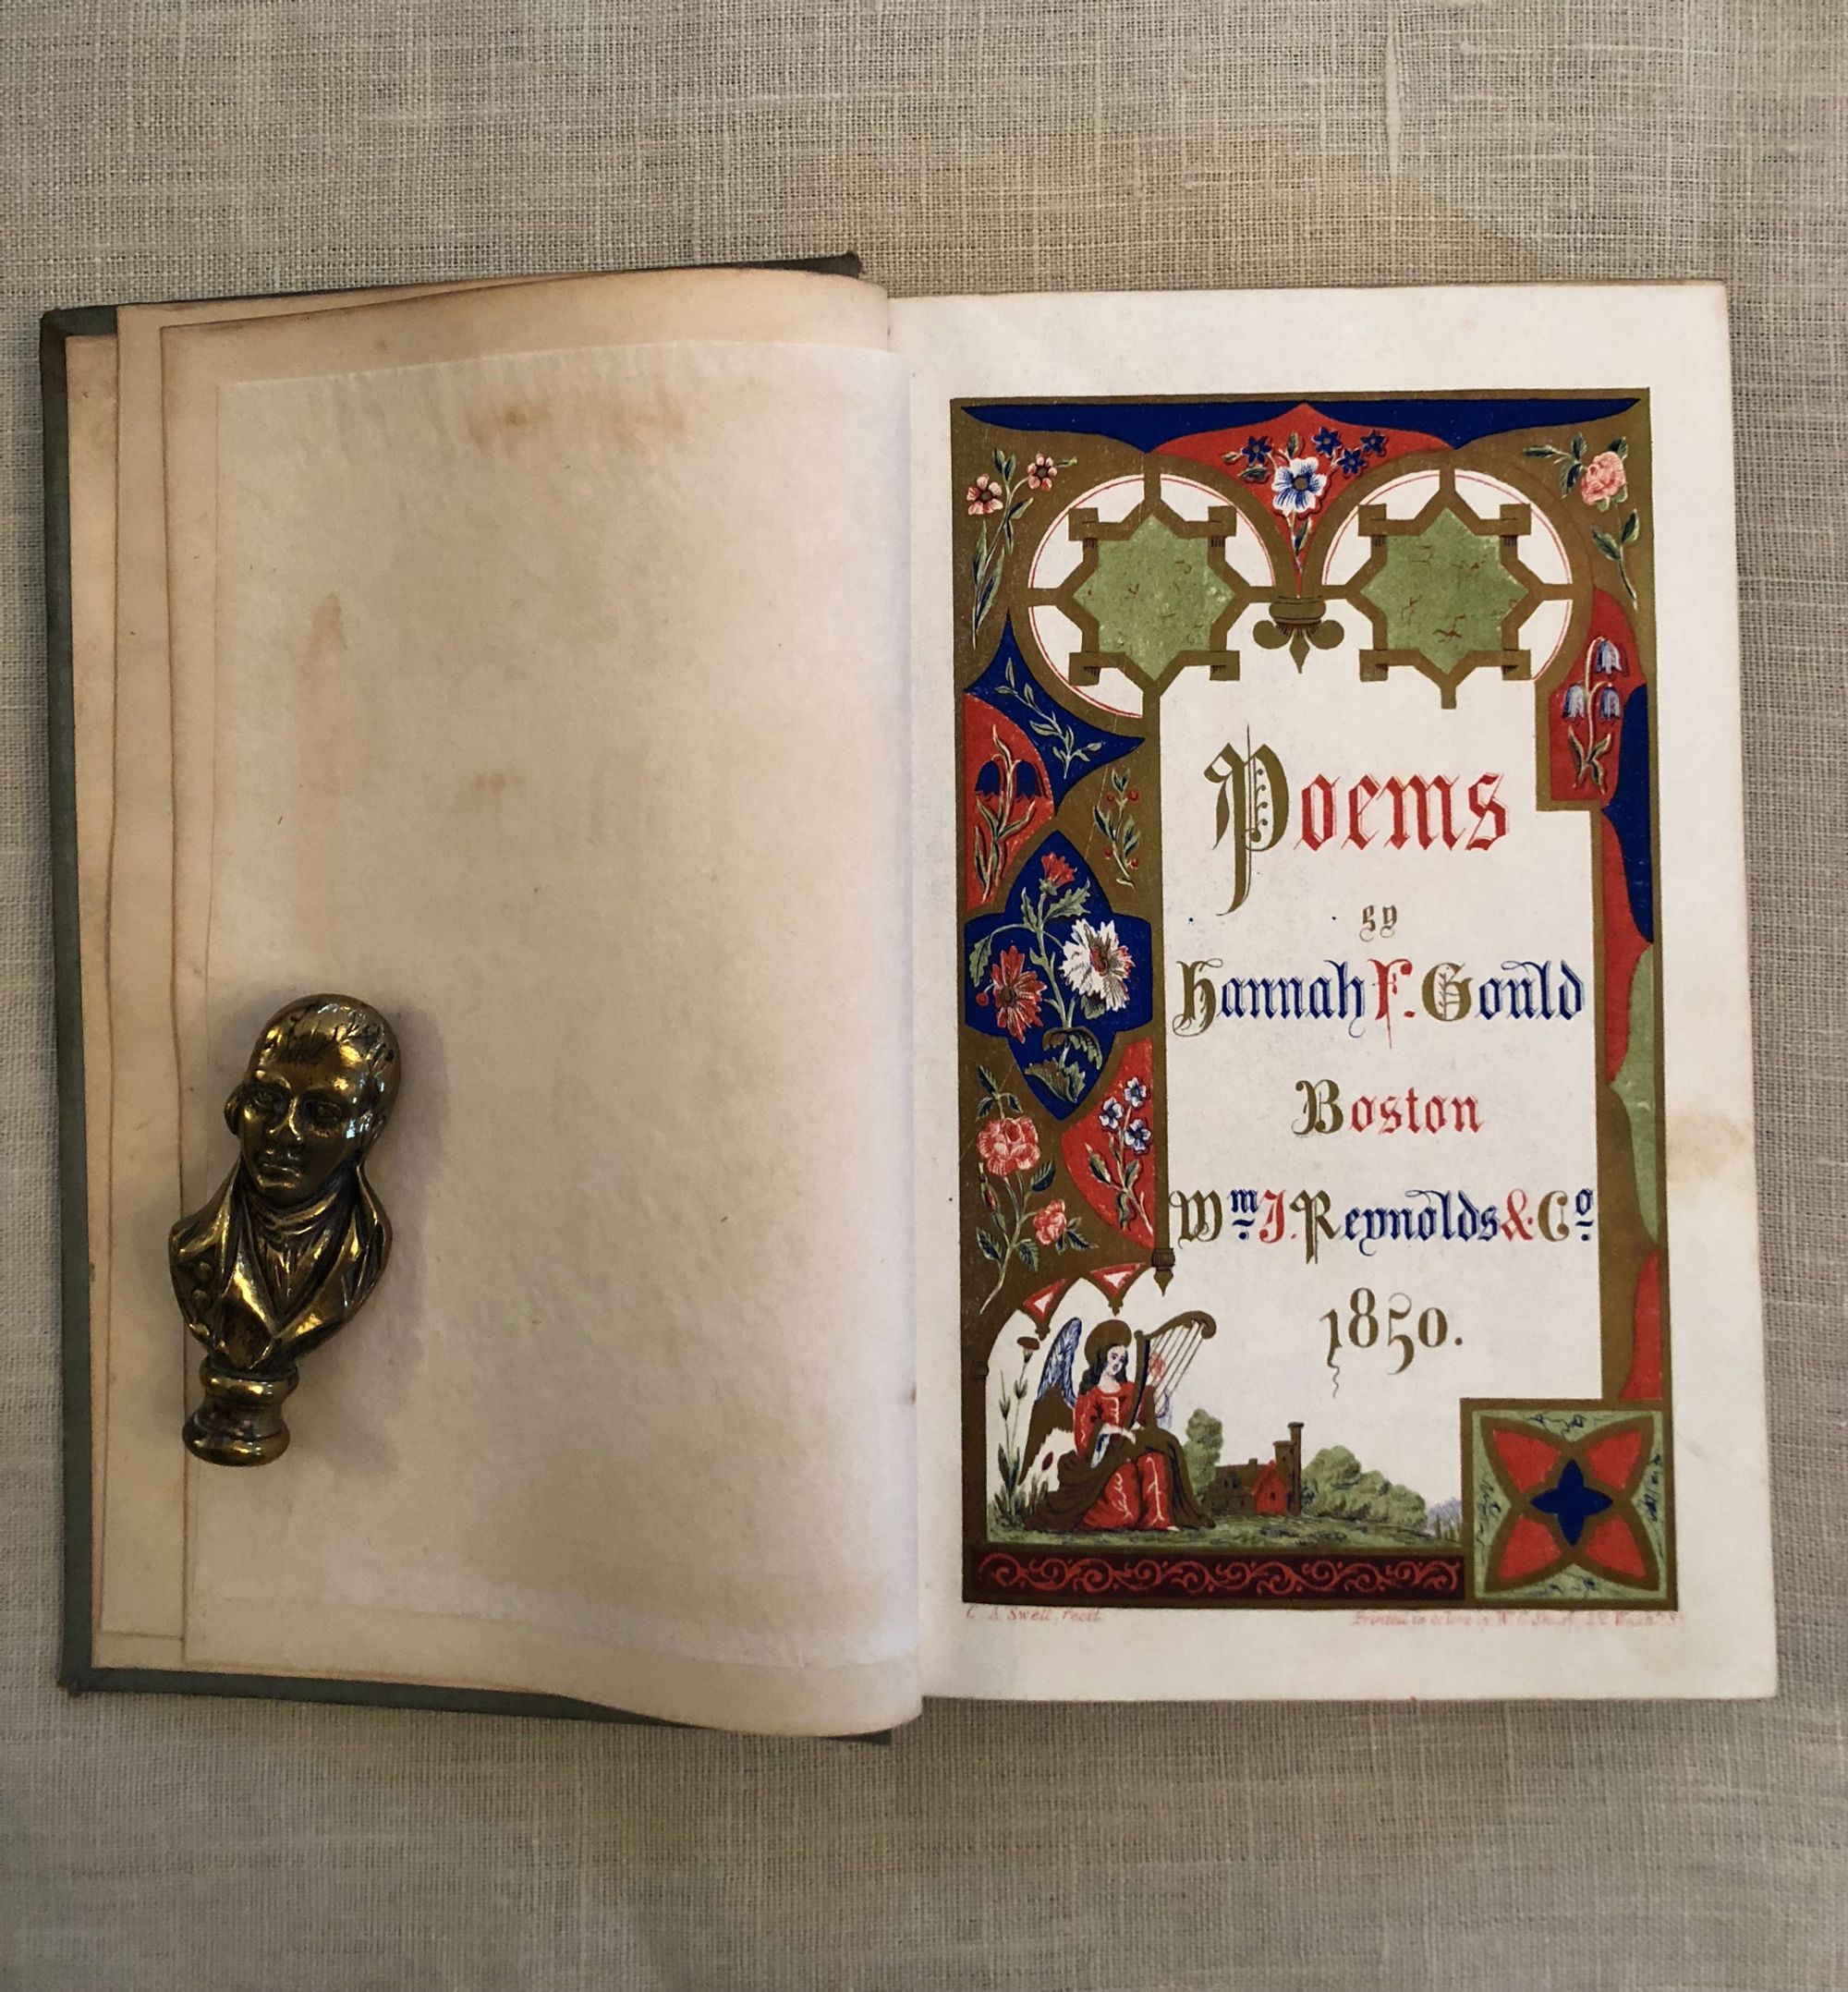 Poems
by
Hannah F. Gould
Boston
Wm J. Reynolds & Co
1850.
Printed in colors by